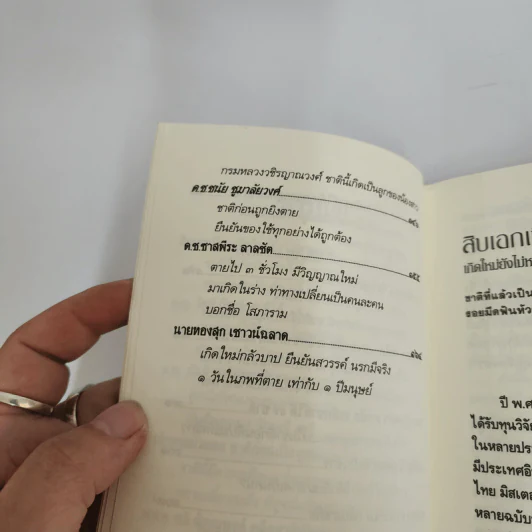 กรมหลวงวชิรญาณวงศ์ ชาตินี้เกิดเป็นลูกของน้องสาว
ด.ช.ชนัย ชูมาลัยวงศ์
ชาติก่อนถูกยิงตาย
ยืนยันของใช้ทุกอย่างได้ถูกต้อง
ด.ช.ชาสพีระ ลาลชัต ๑๕๕
ตายไป ๓ ชั่วโมง มีวิญญาณใหม่
มาเกิดในร่าง ท่าทางเปลี่ยนเป็นคนละคน
บอกชื่อ โสภาราม
นายทองสุก เชาวน์ฉลาด ๑๖๔
เกิดใหม่กลัวบาป ยืนยันสวรรค์ นรกมีจริง
๑ วันในภพที่ตาย เท่ากับ ๑ ปีมนุษย์
สิบเอก
เกิดใหม่ยังไม่
ชาติที่แล้วเป็น
รอยมีดฟันหัว
ปี พ.ศ
ได้รับทุนวิจัย
ในหลายประ
มีประเทศอิ
ไทย มิสเตอ
หลายฉบับ